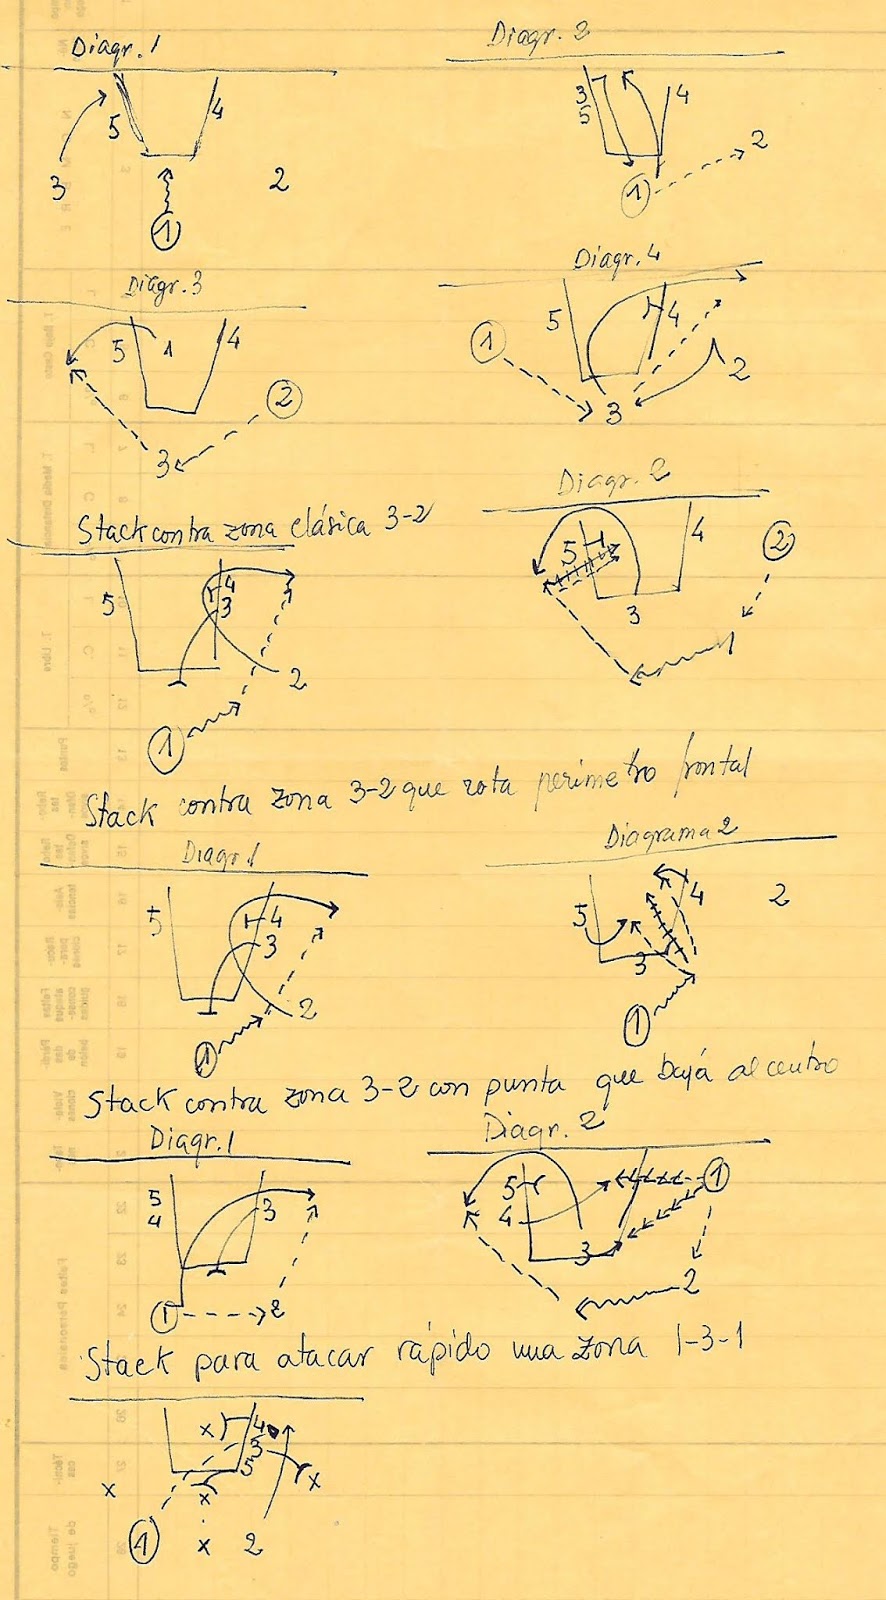 Diagr. 1
Diagr. 2
5 4 3 2 1
3 5 4 2 1
Diagr. 3
Diagr. 4
5 1 4 2 3
1 5 4 2 3
Stack contra zona clásica 3-2
Diagr. 2
5 4 3 2 1
5 4 2 3 1
Stack contra zona 3-2 que rota perimetro frontal
Diagr. 1
Diagrama 2
5 4 3 2 1
5 4 2 3 1
Stack contra zona 3-2 con punta que bajá al centro
Diagr. 1
Diagr. 2
5 4 3 1 2
5 4 1 3 2
Stack para atacar rápido una zona 1-3-1
x 4 3 5 x x x
1 x 2